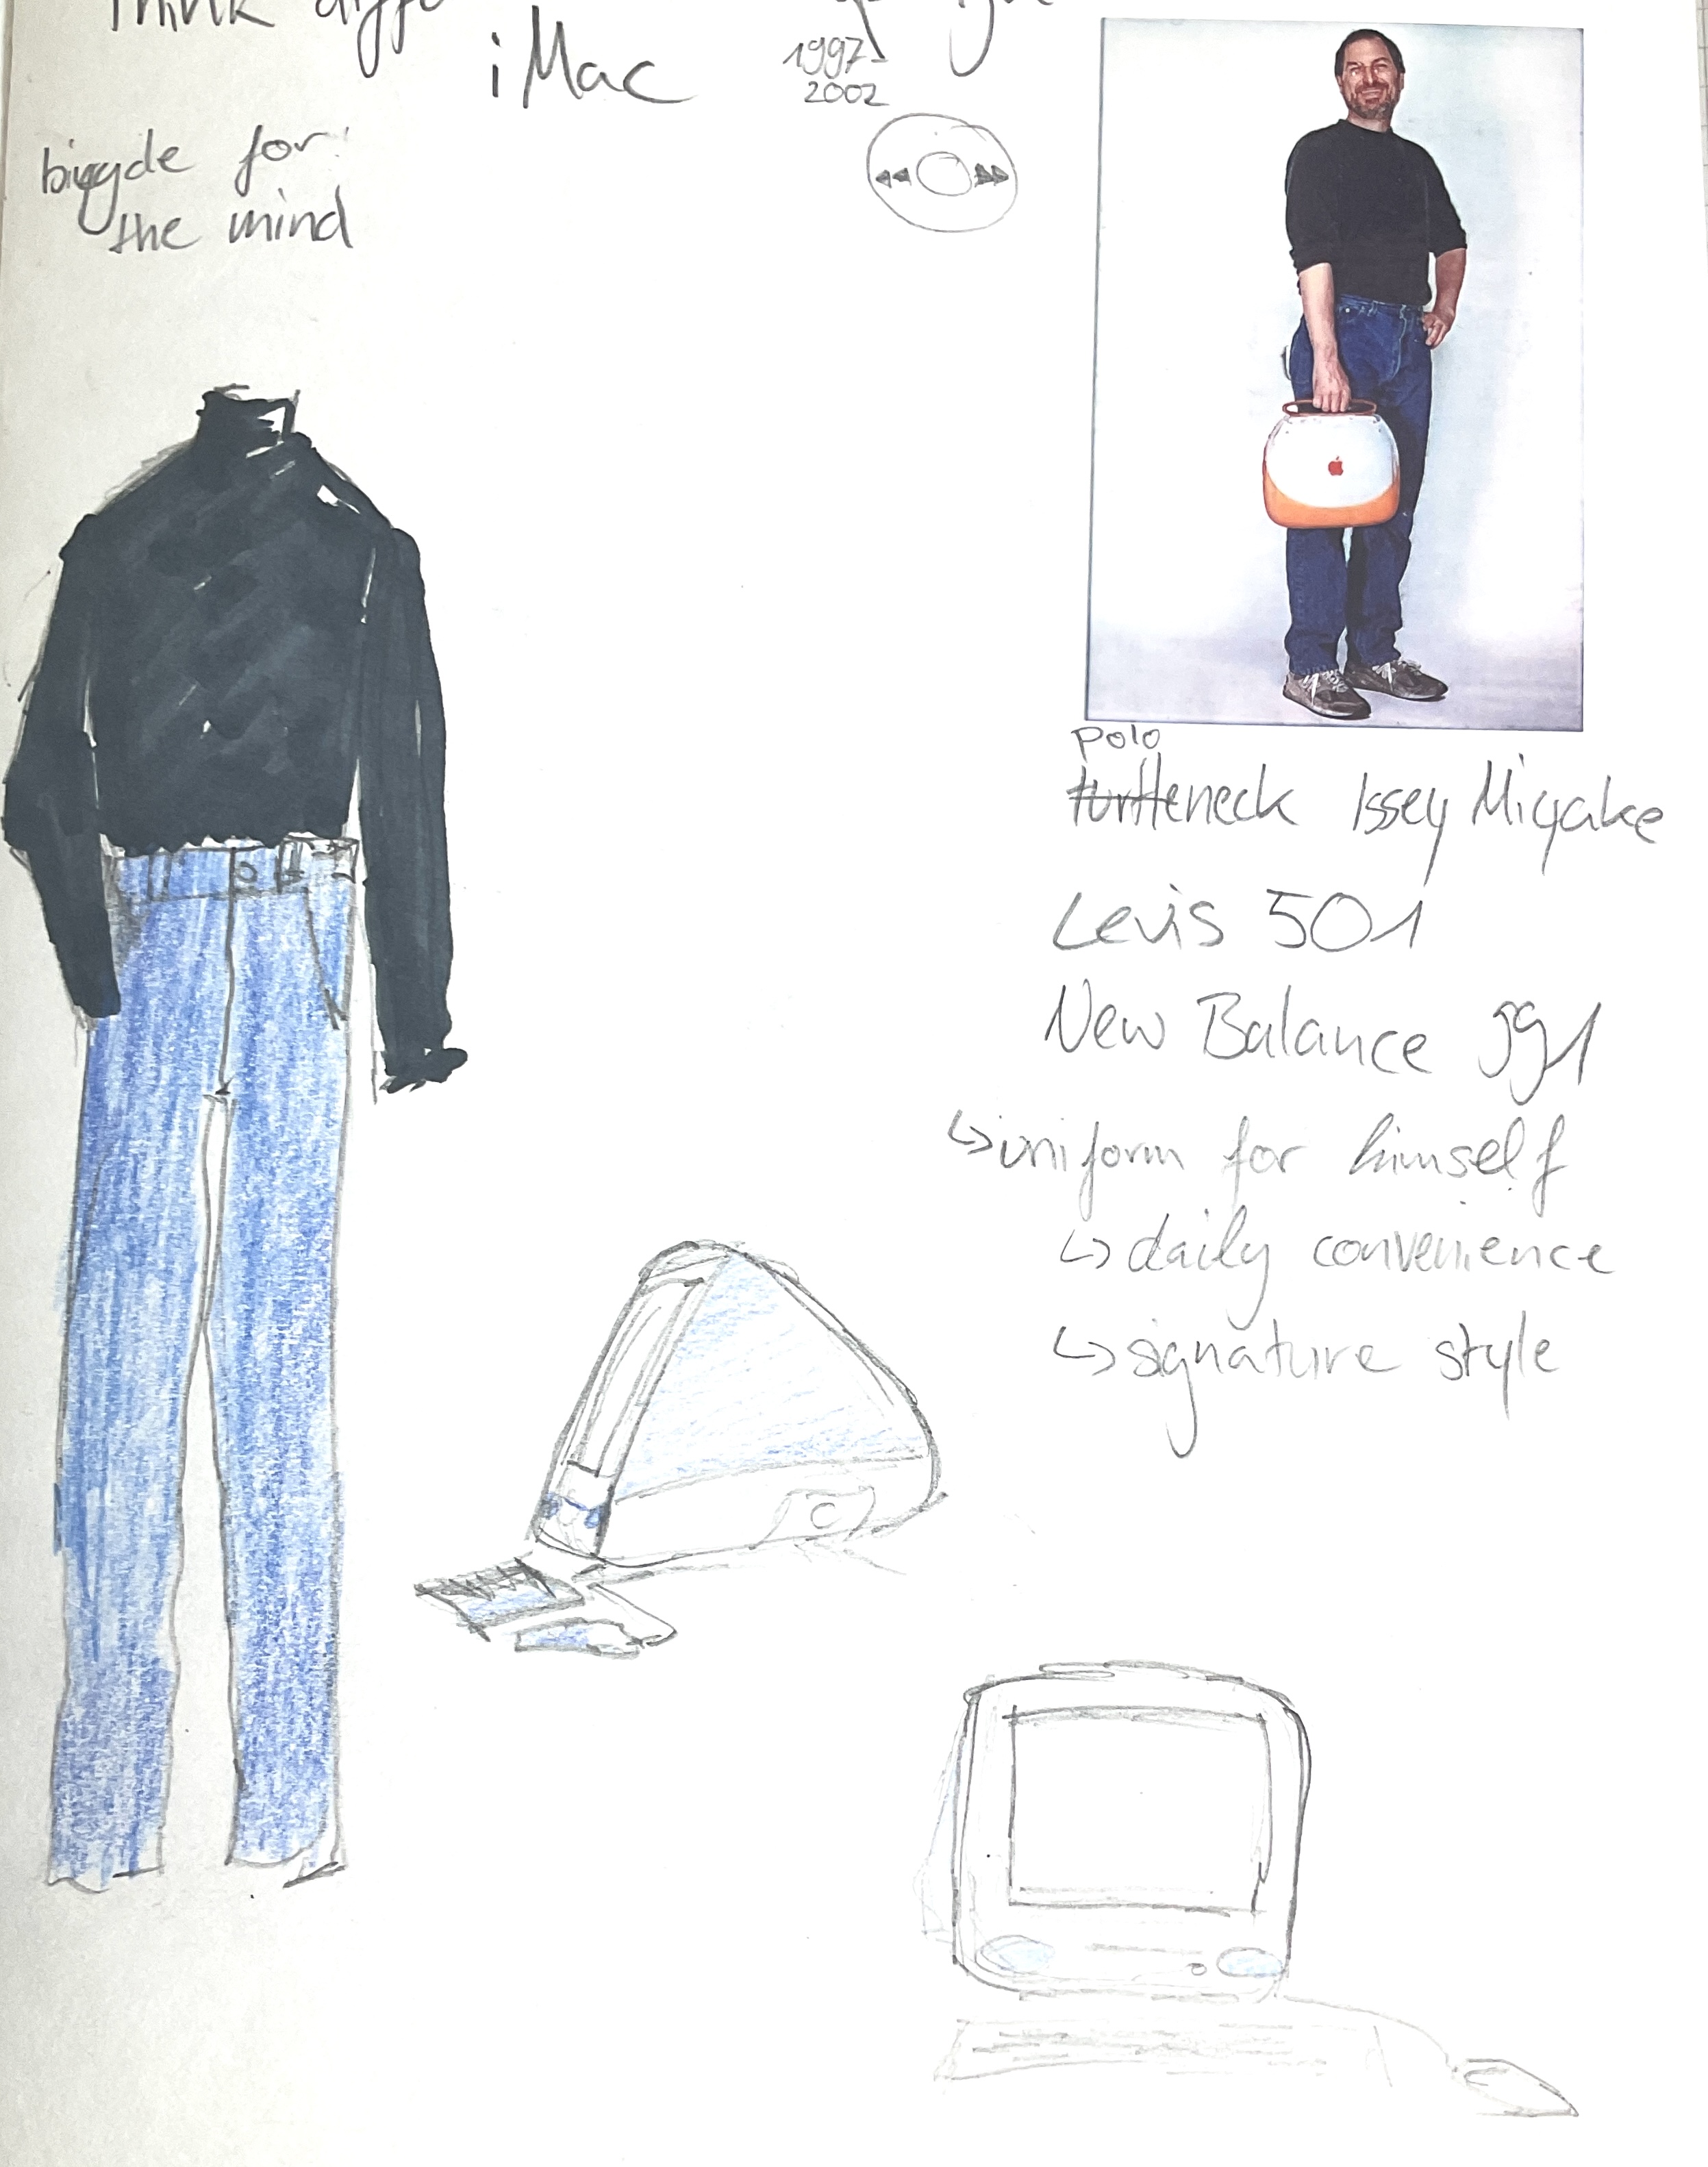 Think
iMac
1997-
2002
bicycle for
the mind
polo
turtleneck Issey Miyake
Levis 501
New Balance 991
↳uniform for himself
↳ daily convenience
↳ signature style